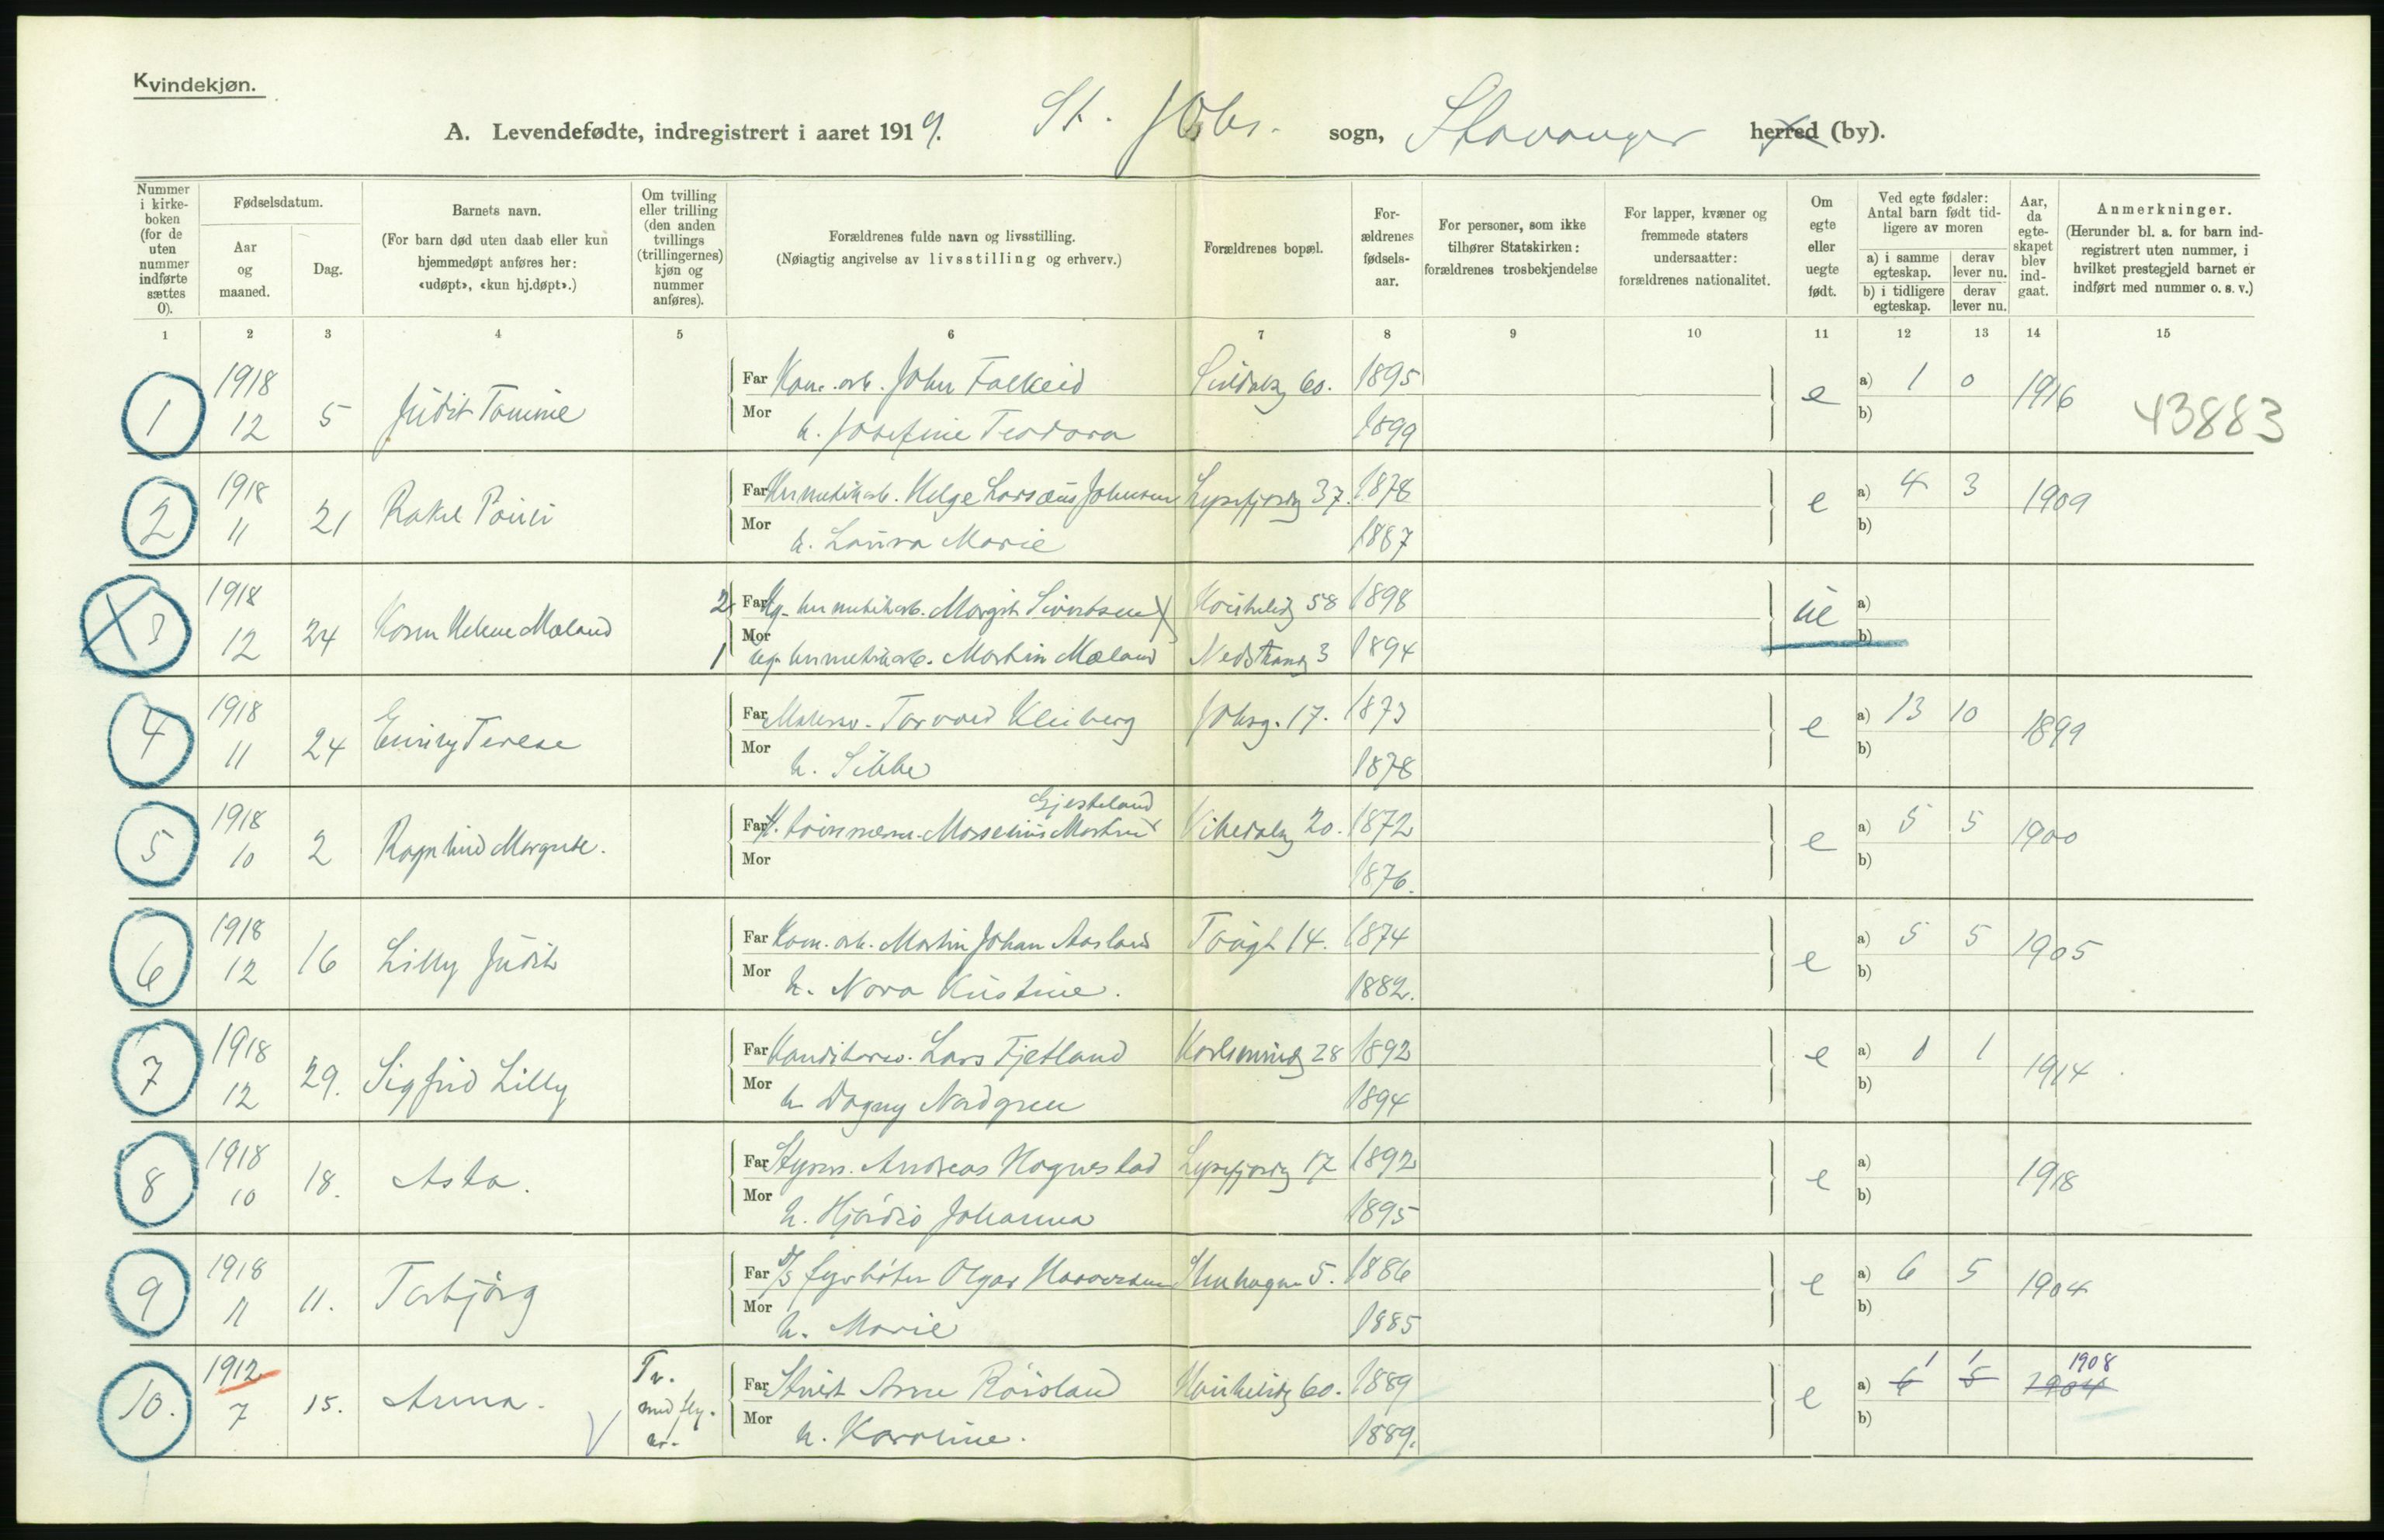 Kvindekjøn.
A. Levendefødte, indregistrert i aaret 1919. St. Johs. sogn, Stavanger herred (by).
Nummer i kirkeboken (for de uten nummer indførte sættes 0).
Fødselsdatum.
Aar og maaned.
Dag.
Barnets navn.
(For barn død uten daab eller kun hjemmedøpt anføres her: «udøpt», «kun hj.døpt».)
Om tvilling eller trilling (den anden tvillings (trillingernes) kjøn og nummer anføres).
Forældrenes fulde navn og livsstilling.
(Nøiagtig angivelse av livsstilling og erhverv.)
Forældrenes bopæl.
Forældrenes fødselsaar.
For personer, som ikke tilhører Statskirken: forældrenes trosbekjendelse
For lapper, kvæner og fremmede staters undersaatter: forældrenes nationalitet.
Om egte eller uegte født.
Ved egte fødsler: Antal barn født tidligere av moren
a) i samme egteskap.
derav lever nu.
b) i tidligere egteskap.
derav lever nu.
Aar, da egteskapet blev indgaat.
Anmerkninger.
(Herunder bl. a. for barn indregistrert uten nummer, i hvilket prestegjeld barnet er indført med nummer o. s. v.)
1 2 3 4 5 6 7 8 9 10 11 12 13 14 15
1 1918 12 5 Judit Tomine Far John Falkeid 60. 1895 e a) 1 0 1916 43883
Mor h. Josefine Teodora 1899 b)
2 1918 11 21 Rakel Far Hermetikarb. Helge Larsæus Johnsen Lysefjordg 37. 1878 e a) 4 3 1909
Mor h. Laura Marie 1887 b)
3 1918 12 24 Karen Helene Mæland 2 Far Ug. hermetikarb. Margit Sivertsen 58 1898 ue a)
1 Mor Ug. hermetikarb. Martin Mæland Nedstrandg 3 1894 b)
4 1918 11 24 Terese Far Torvald Kleiberg Johsg. 17. 1873 e a) 13 10 1899
Mor h. 1878 b)
5 1918 10 2 Ragnhild Margrete. Far Martin Gjesteland Vikedalsg 20. 1872 e a) 5 5 1900
Mor 1876. b)
6 1918 12 16 Lilly Judit Far Martin Johan Aasland 14. 1874 e a) 5 5 1905
Mor h. Nora Kristine. 1882. b)
7 1918 12 29. Sigfrid Lilly Far Lars Fjetland Karlsmindeg 28 1892 e a) 1 1 1914
Mor h. Dagny Nordgren 1894 b)
8 1918 10 18. Asta. Far Styrm. Andreas Hognestad Lysefjordg 17 1892 e a) 1918
Mor h. Hjørdis Johanna 1895 b)
9 1918 11 11. Torbjørg Far D/S fyrbøter Olgar 5. 1886 e a) 6 5 1904
Mor h. Marie 1885 b)
10. 1912 7 15. Anna. Tv. Far Arne Røisland 60. 1889 e a) 6 1 5 1 1904 1908
Mor h. Karoline. 1889. b)